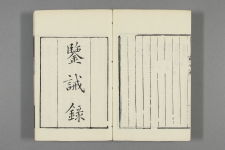 鑒誡錄